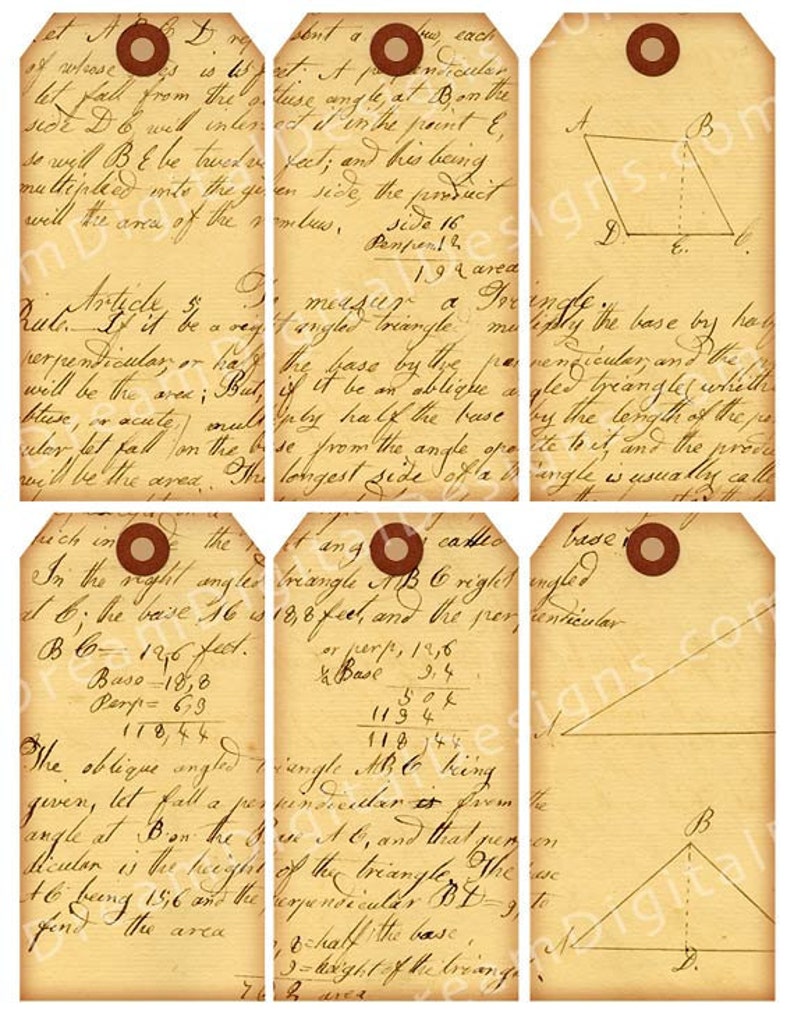 Let A B C D rep sent a bus, each
of whose sides is 15 feet. A perpendicular
let fall from the obtuse angle, at B on the
side D C will intersect it in the point E,
so will B E be twelve feet; and his being
multiplied into the given side, the product
will the area of the rombus. side 16
Perpen. 12
192 area
A B
D. E. C.
Article 5 To measur a Triangle.
Rule. If it be a right angled triangle multiply the base by half
perpendicular, or half the base by the perpendicular, and the
will be the area; But, if it be an oblique angled triangle, whether
obtuse, or acute, multiply half the base by the length of the
ular let fall on the base from the angle oposite to it, and the produc
will be the area. The longest side of a triangle is usually calle
which in the ang called base,
In the right angled triangle A B C right angled
at C; the base A C is 18,8 feet, and the perpendicular
B C = 12,6 feet. or perp, 12,6
Base = 18,8 ½ Base 9,4
Perp = 6,3 504
118,44 1134
118,44
A
The oblique angled triangle A B C being
given, let fall a perpendicular is from the
angle at B on the Base A C, and that perpen
dicular is the height of the triangle. The base
A C being 15,6 and the, perpendicular B D = 9, to
find the area
,8 = half the base,
9 = height of the triangle.
70 2 area
B
A
D.
DreamDigitalDesigns.com